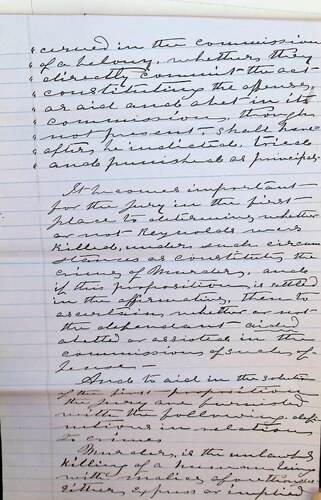 " cerned in the commission
" of a felony, whether they
" directly commit the act
" constituting the offense,
" or aid and abet in its
" commission, though
" not present — shall here
" after be indicted, tried
" and punished as principal.
It becomes important
for the jury in the first
place to determine whether
or not Reynolds was
killed, under such circum
stances as constitutes the
crime of Murder, and
if this proposition is settled
in the affirmative, then to
ascertain whether or not
the defendant — aided
abetted or assisted in the
commission of such of-
fense —
And to aid in the solution
of the first proposition
the jury are furnished
with the following defi
nitions in relation
to crimes
Murder, is the unlawful
killing of a human being
with malice aforethought
either express or implied